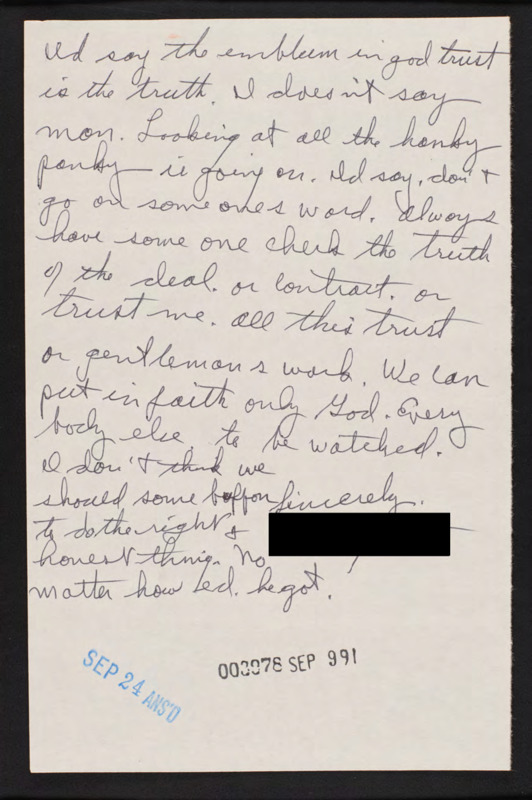 I'd say the emblum in god trust
is the truth. I does'nt say
man. Looking at all the hanky
panky is going on. I'd say. don't
go on some one s word. Always
have some one check the truth
of the deal. or contract. or
trust me. all this trust
or gentleman s work. We can
put in faith only God. Every
body else to be watched.
I don't think we
should some buffon Sincerely.
to do the right &
honest thing. No
matter how ed. he got.
SEP 24 ANS'D
003978 SEP 991